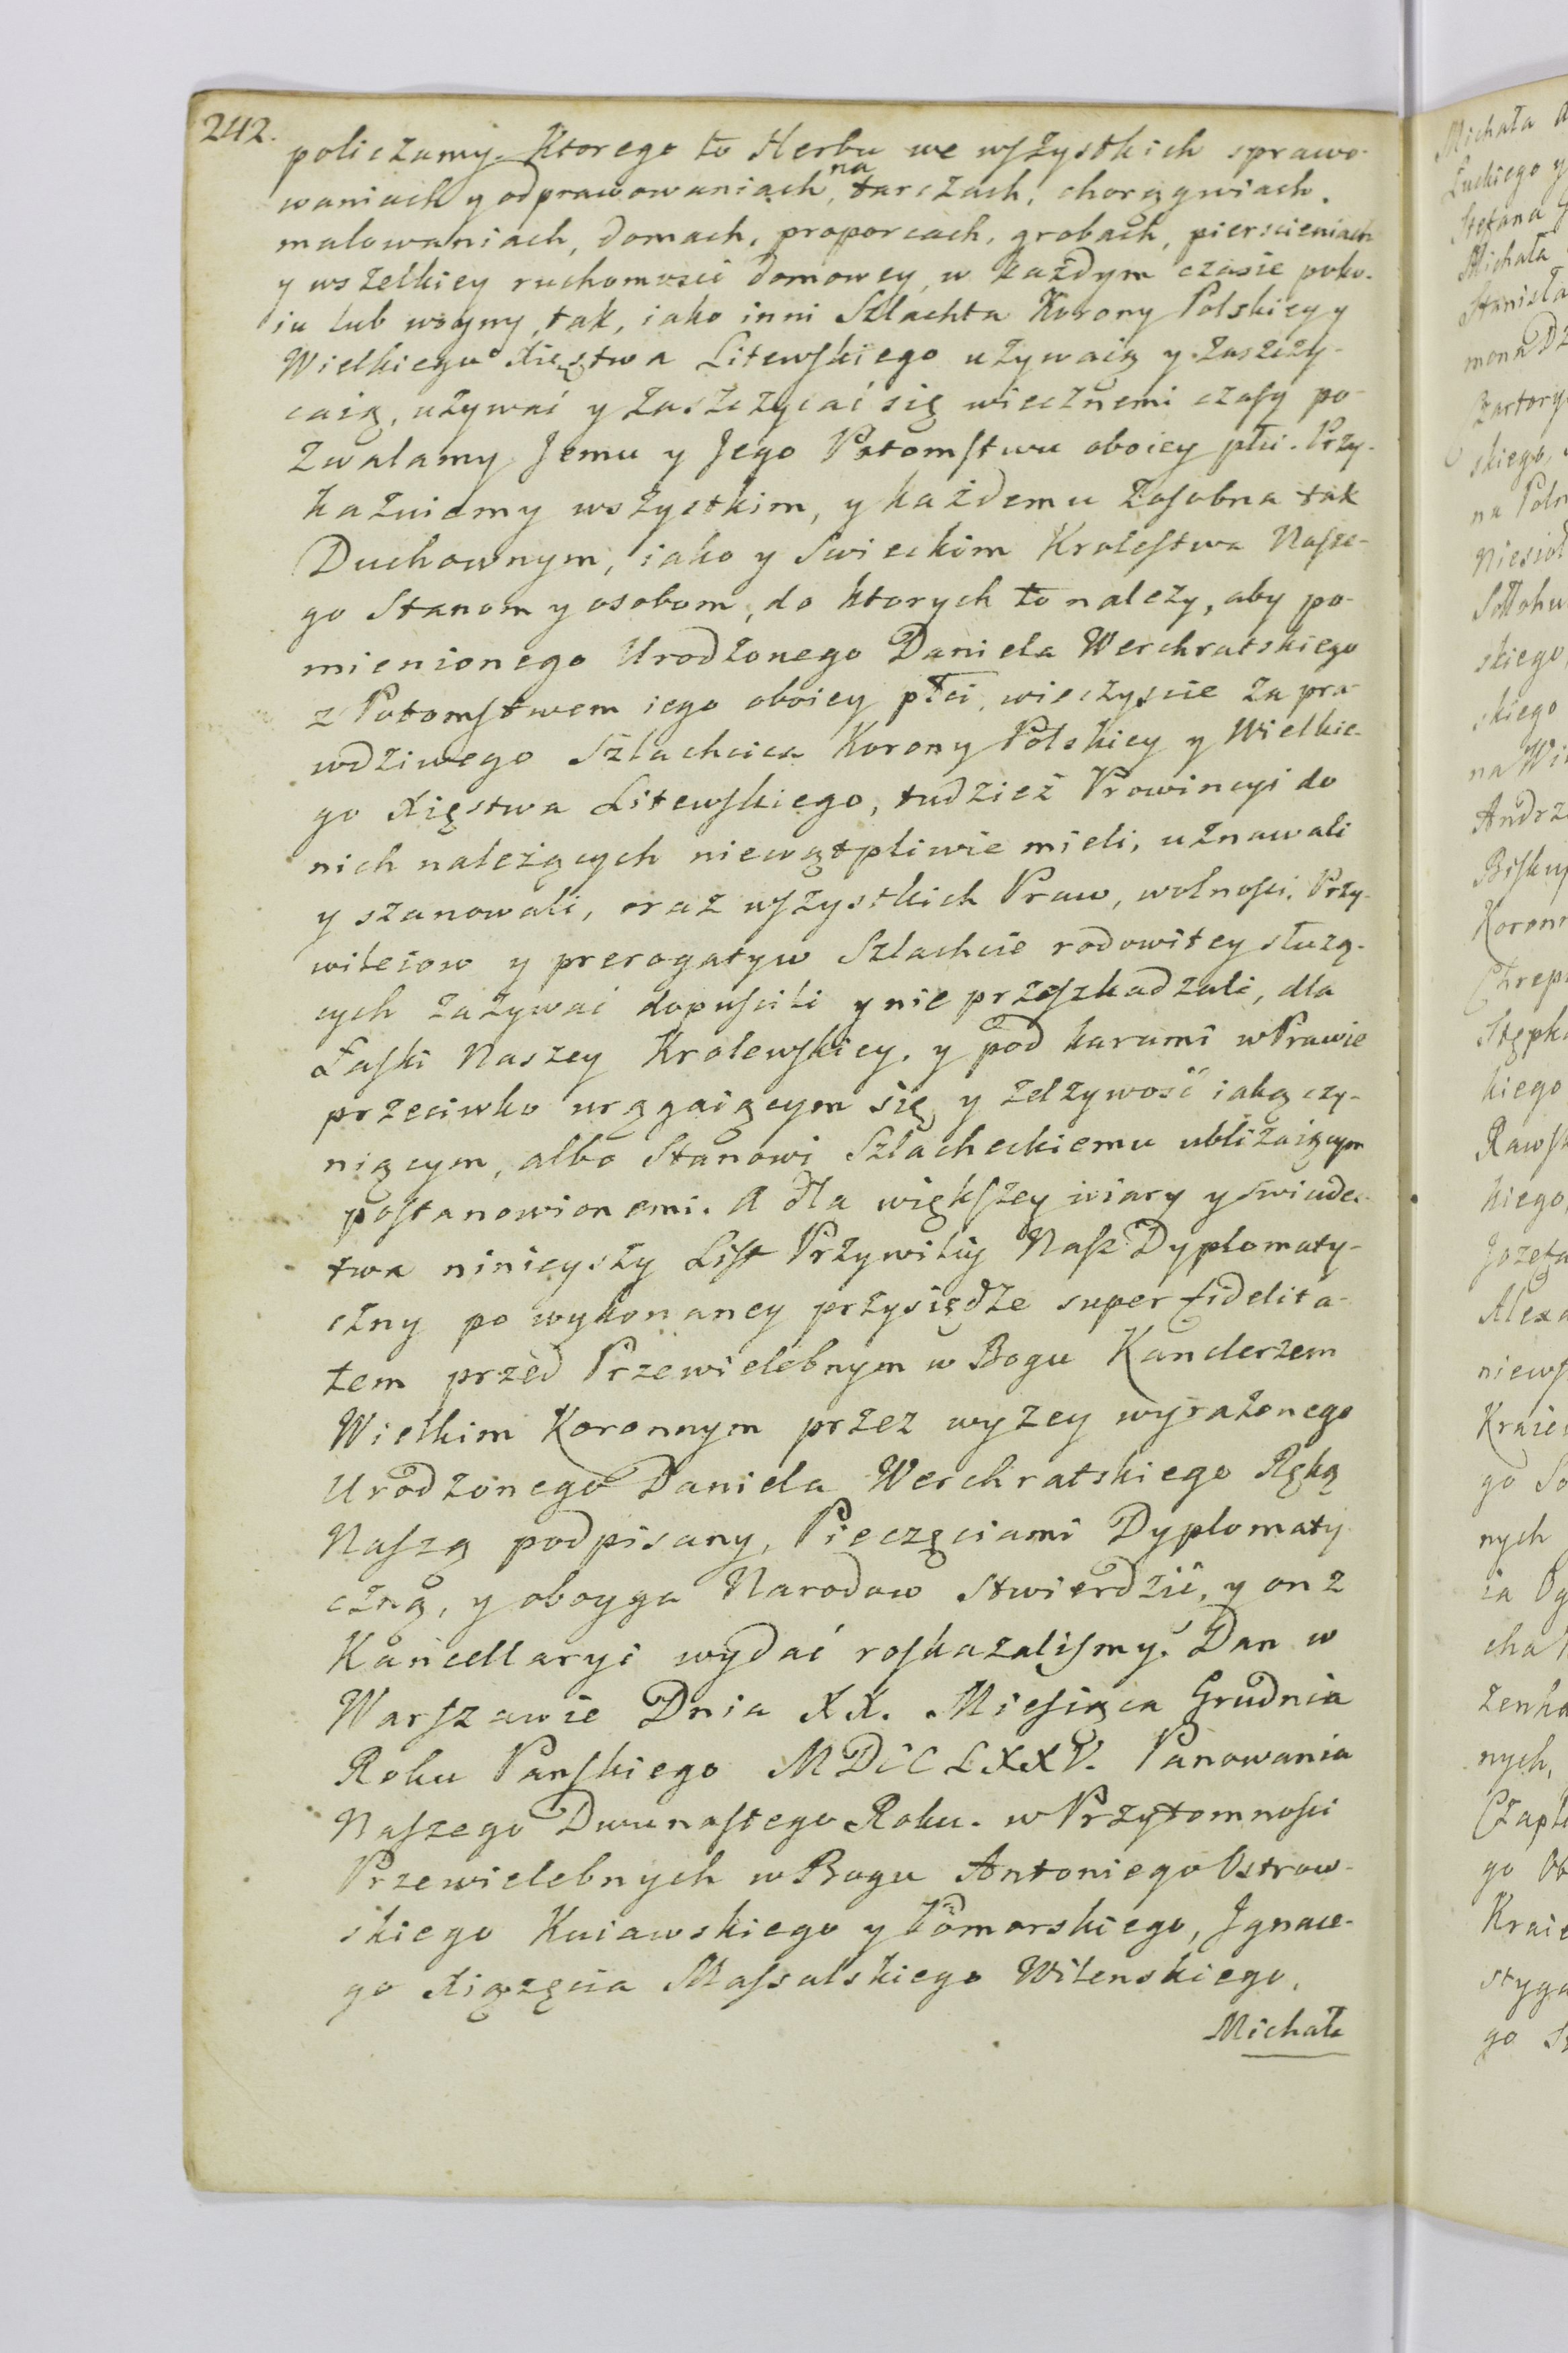 242.
policzamy. Ktorego to Herbu we wszystkich sprawo-
waniach y odprawowaniach, na tarczach, chorągwiach,
malowaniach, domach, proporcach, grobach, pierscieniach
y wszelkiey ruchomosci domowey, w każdym czasie poko-
iu lub woyny, tak, iako inni Szlachta Korony Polskiey y
Wielkiego Xięstwa Litewskiego używaią y zaszczy-
caią, używać y zaszczycać się wiecznemi czasy po-
zwalamy Jemu y Jego Potomstwu oboiey płci. Przy-
kazuiemy wszystkim, y każdemu zosobna tak
Duchownym, iako y Swieckim Krolestwa Nasze-
go Stanom y osobom, do ktorych to należy, aby po-
mienionego Urodzonego Daniela Werchratskiego
z Potomstwem iego oboiey płci, wieczyscie za pra-
wdziwego Szlachcica Korony Polskiey y Wielkie-
go Xięstwa Litewskiego, tudzież Prowincyi do
nich należących niewątpliwie mieli, uznawali
y szanowali, oraz wszystkich Praw, wolnosci, Przy-
wileiow y prerogatyw Szlachcie rodowitey służą-
cych zażywać dopuscili y nie przeszkadzali, dla
Łaski Naszey Krolewskiey, y pod karami w Prawie
przeciwko urągaiącym się y zelżywość iaką czy-
niącym, albo Stanowi Szlacheckiemu ubliżaiącym
postanowionemi. A dla większey wiary y swiadec-
twa ninieyszy List Przywiley Nasz Dyplomaty-
czny po wykonaney przysiędze super fidelita-
tem przed Przewielebnym w Bogu Kanclerzem
Wielkim Koronnym przez wyżey wyrażonego
Urodzonego Daniela Werchratskiego Ręką
Naszą podpisany, Pieczęciami Dyplomaty
czną, y oboyga Narodow stwierdzić, y on z
Kancellaryi wydać roskazalismy. Dan w
Warszawie Dnia XX. Miesiąca Grudnia
Roku Panskiego MDCCLXXV. Panowania
Naszego Dwunastego Roku. w Przytomnosci
Przewielebnych w Bogu Antoniego Ostrow-
skiego Kuiawskiego y Pomorskiego, Ignace-
go Xiążęcia Massalskiego Wilenskiego,
Michała
Michała
Łuckiego y
Stefana
Michała
Stanisła
mona Dz
Czartory
skiego,
na Poln
Niesioł
Sołłohu
skiego,
skiego
na Wi
Andrz
Biskup
Koronn
Chrep
Stępk
kiego
Rawsk
kiego,
Jozefa
Alexa
niews
Kraie
go So
nych
ia Og
cha
zenh
nych,
Czapli
go Ob
Kraie
styga
go